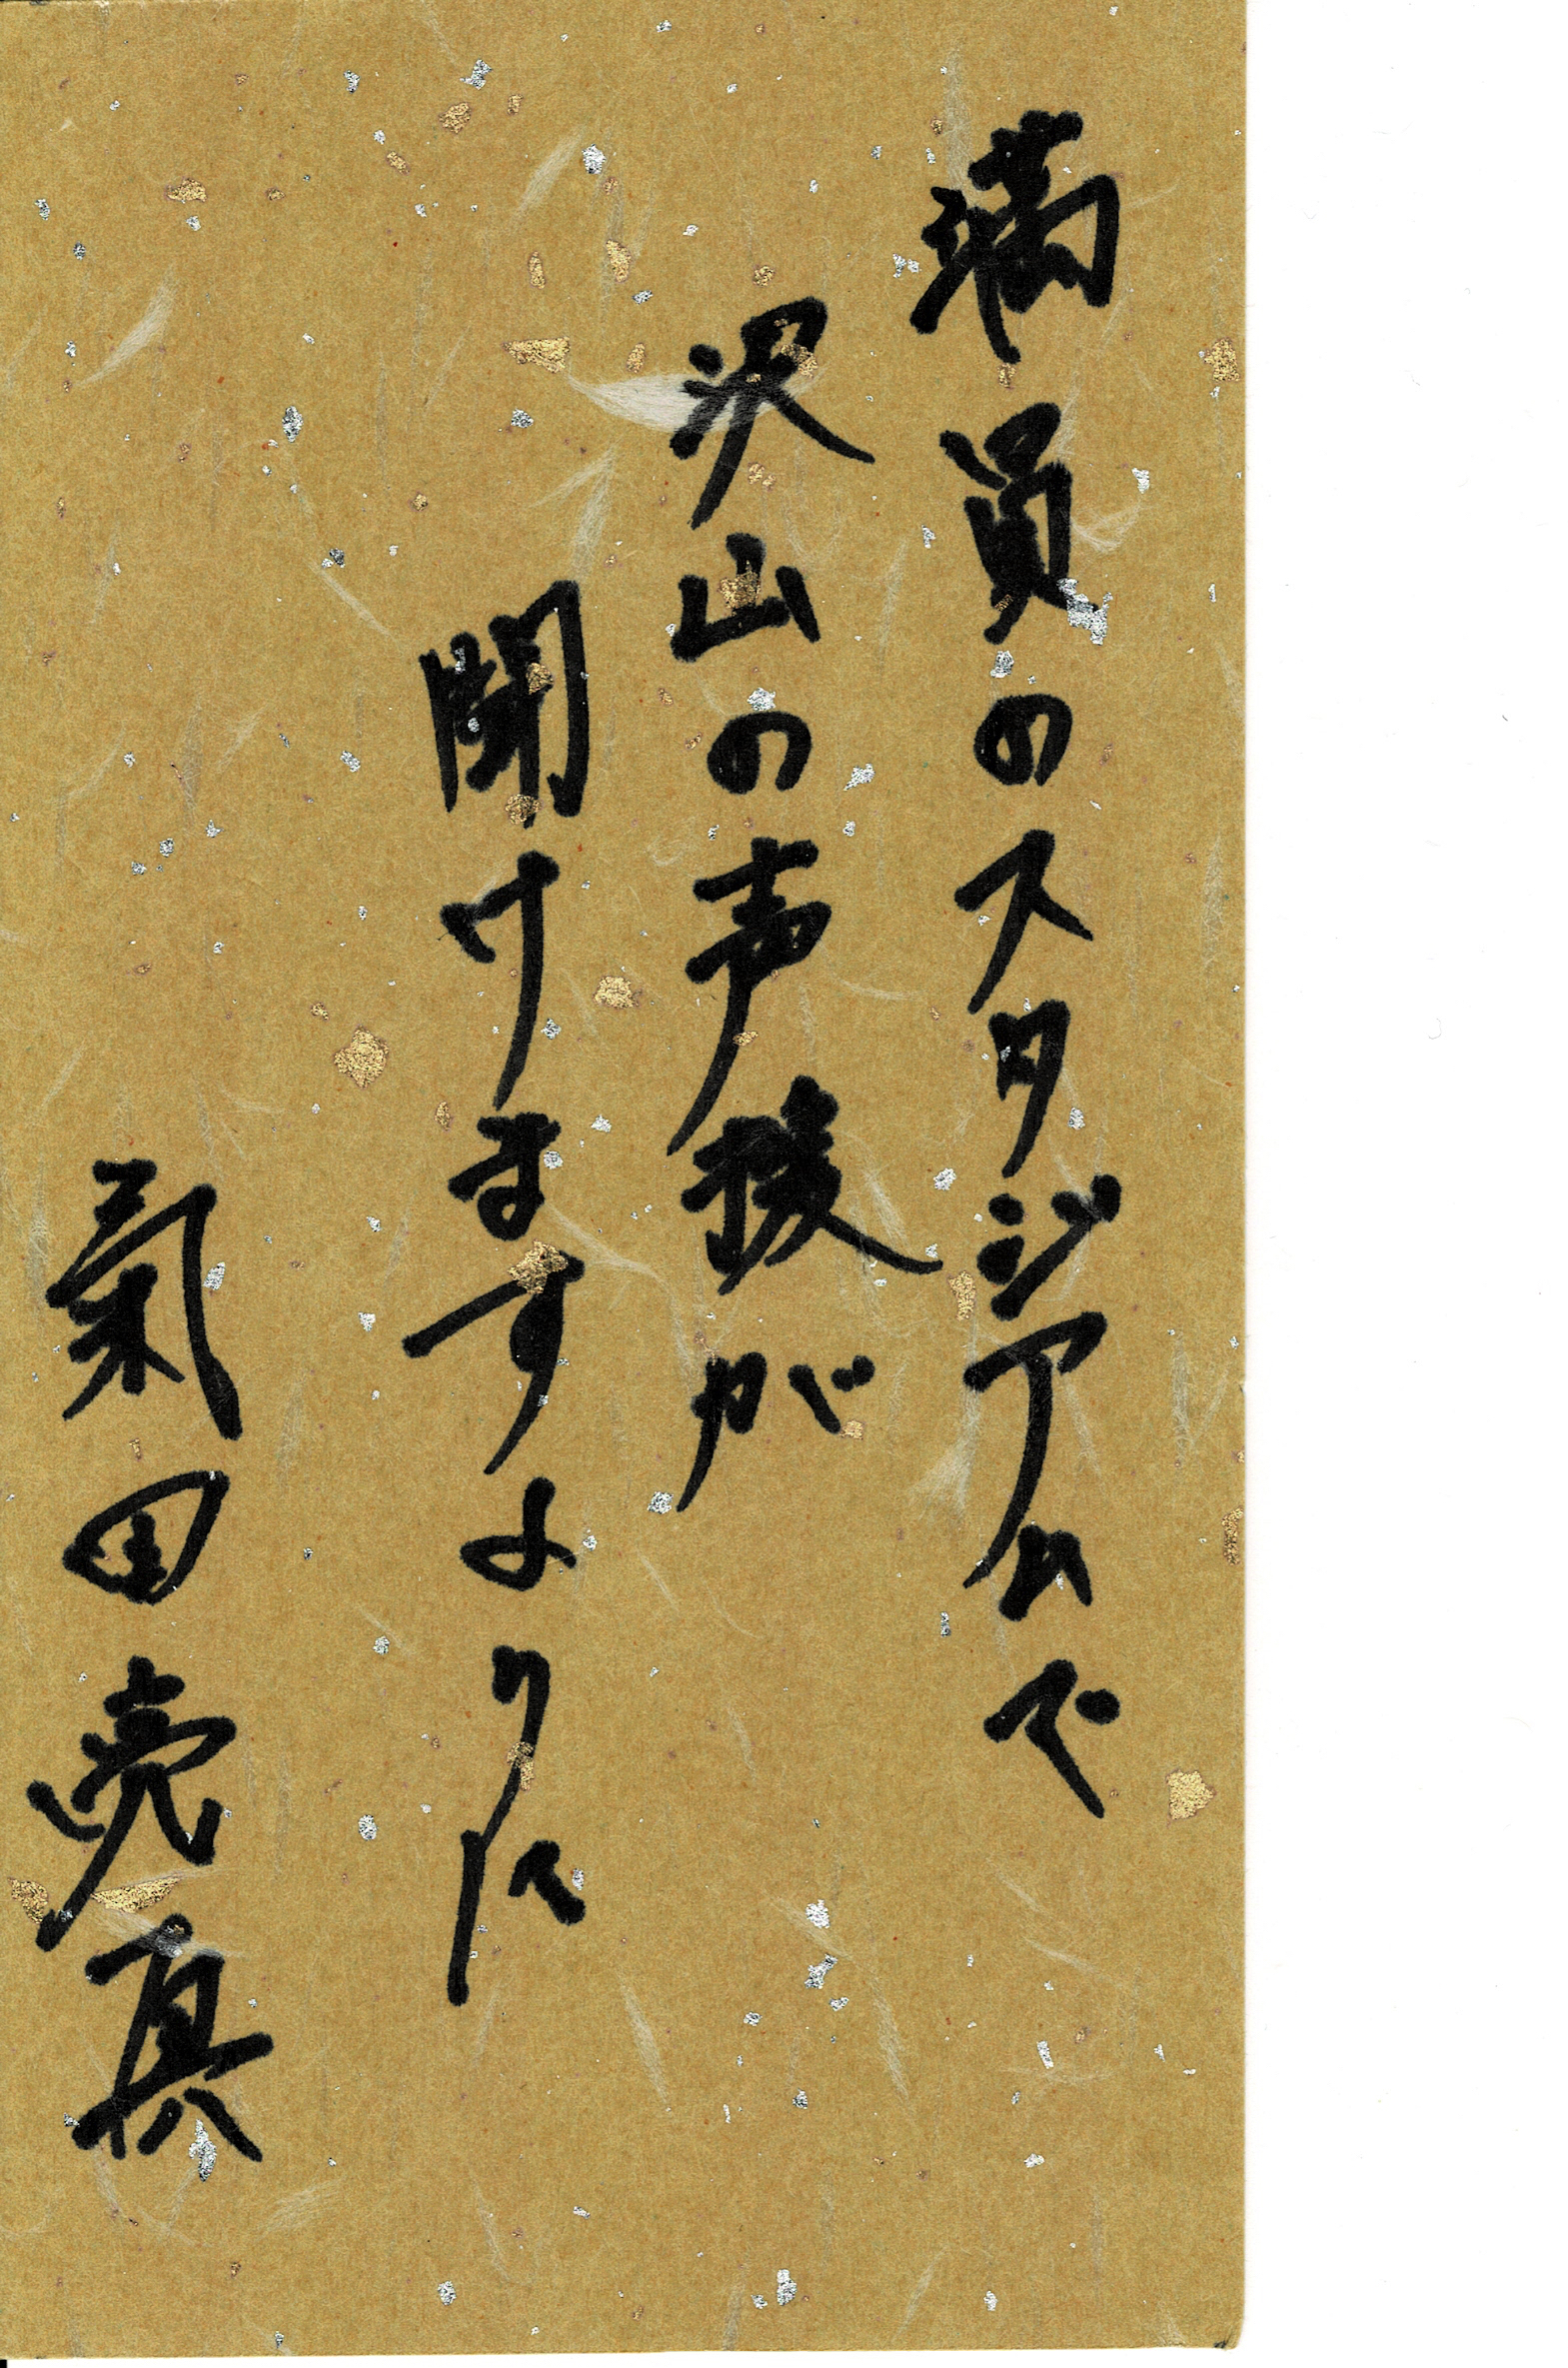 満員のスタジアムで
沢山の声援が
聞けますように
氣田亮真